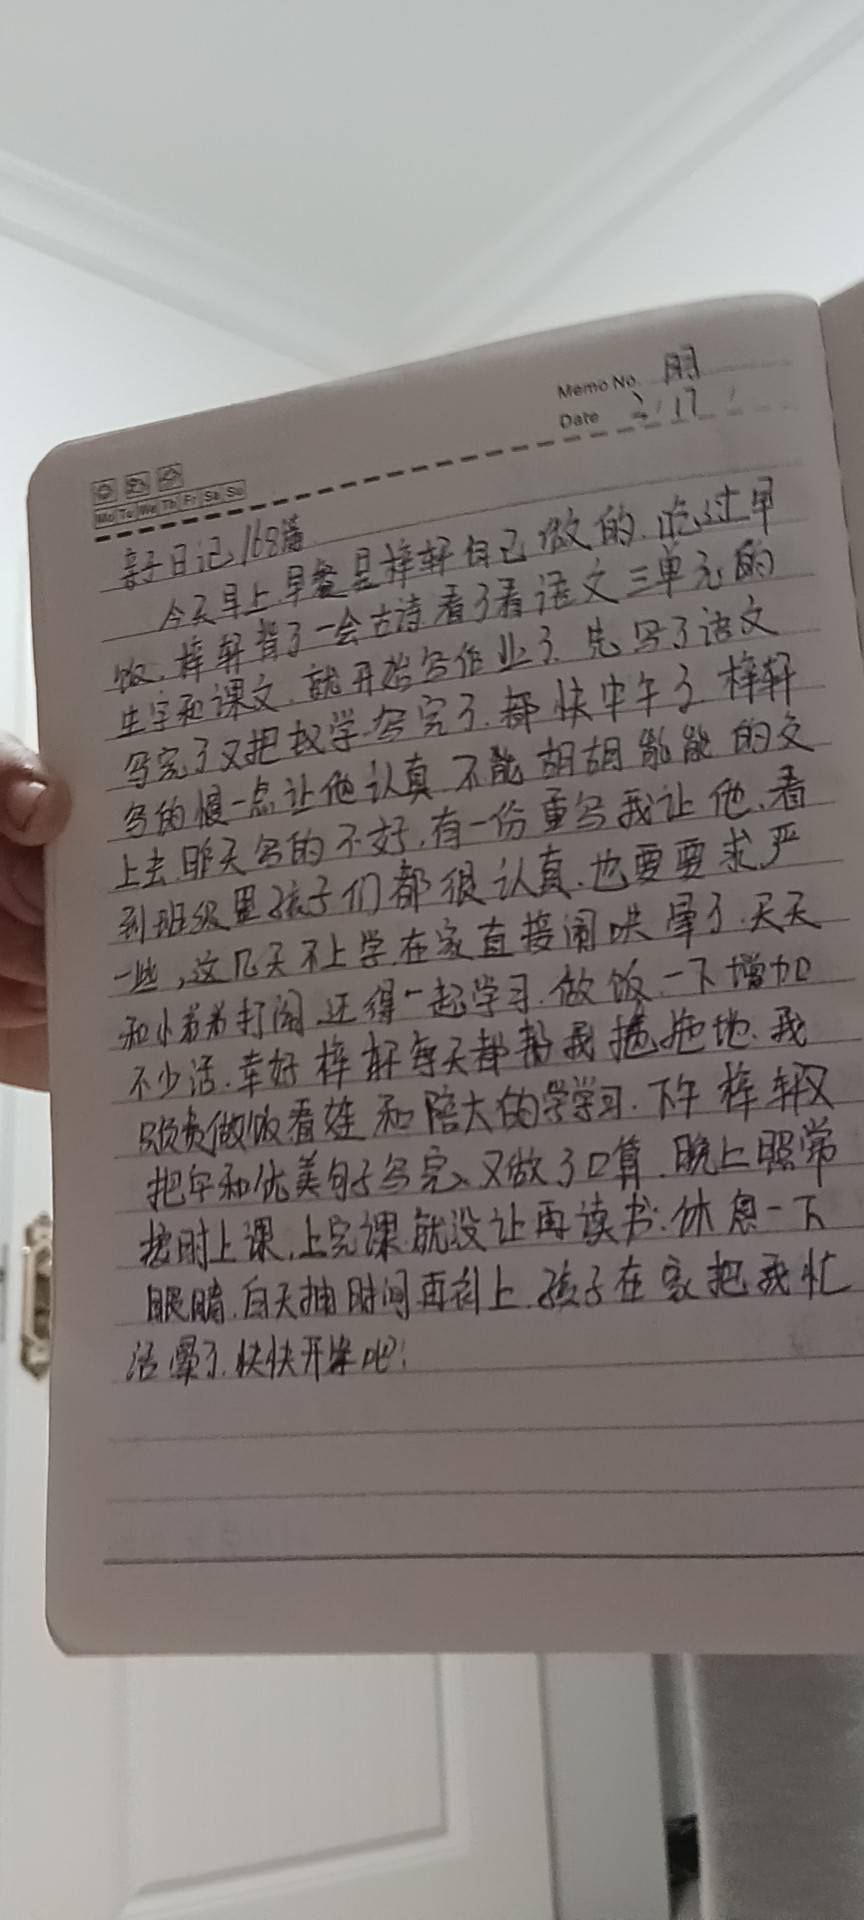 Memo No. 阴
Date 2 / 17 /
Mo Tu We Th Fr Sa Su
亲子日记168篇
今天早上早餐是梓轩自己做的.吃过早
饭.梓轩背了一会古诗看了看语文三单元的
生字和课文.就开始写作业了.先写了语文
写完了又把数学写完了.都快中午了.梓轩
写的慢一点让他认真不能胡胡能能的交
上去.昨天写的不好,有一份重写我让他.看
到班级里孩子们都很认真.也要要求严
一些,这几天不上学.在家直接闹哄晕了.天天
和小弟弟打闹.还得一起学习.做饭.一下增加
不少活.幸好梓轩每天都帮我擦拖地.我
只负责做饭看娃和陪大的学学习.下午梓轩又
把字和优美句子写完.又做了口算.晚上照常
按时上课,上完课就没让再读书.休息一下
眼睛.白天抽时间再补上.孩子在家把我忙
活晕了.快快开学吧!